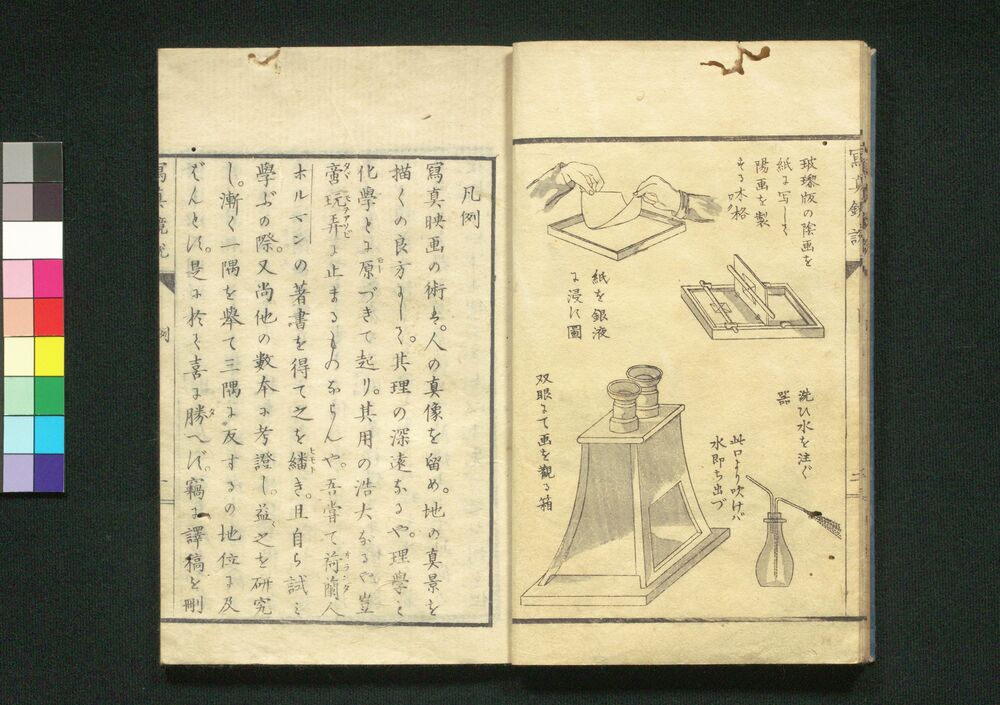 寫真鏡説
玻瓈版の陰画を
紙に写して
陽画を製
する木格
紙を銀液
に浸す圖
洗ひ水を注ぐ
器
此口より吹けバ
水即ち出づ
双眼にて画を觀る箱
二
凡例
寫真映画の術ハ。人の真像を留め。地の真景を
描くの良方にして。其理の深遠なるや。理學と
化學とに原づきて起り。其用の浩大なるや豈
啻玩弄に止まるものならんや。吾嘗て荷蘭人
ホルマンの著書を得て之を繙き。且自ら試ミ
學ぶの際。又尚他の数本に考證し。益之を研究
し。漸く一隅を擧て三隅に反するの地位に及
ばんとす。是に於て喜に勝へず。竊に譯稿を刪
寫真鏡説
例
一